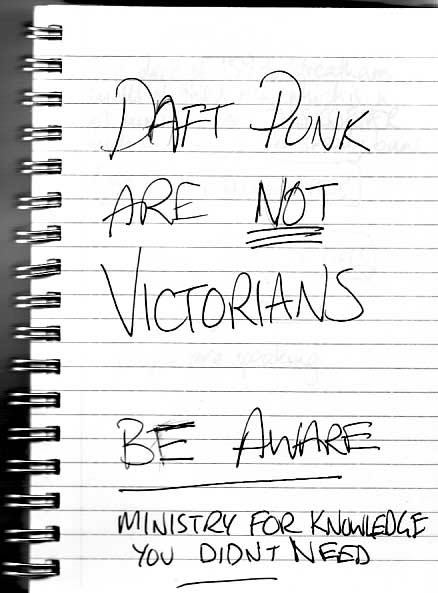 DAFT PUNK
ARE NOT
VICTORIANS
BE AWARE
MINISTRY FOR KNOWLEDGE
YOU DIDNT NEED